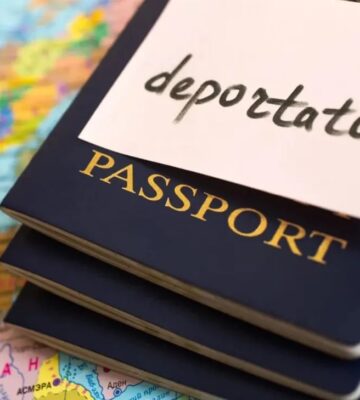 deportat
PASSPORT
АСМЭРА
Аден